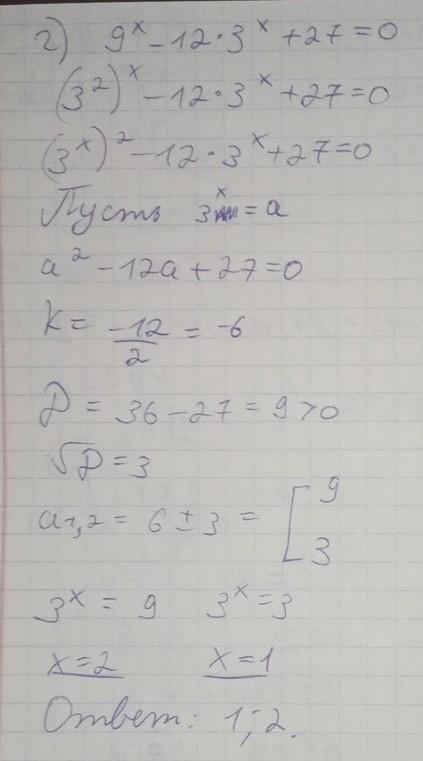 г) 9^x - 12 · 3^x + 27 = 0
(3^2)^x - 12 · 3^x + 27 = 0
(3^x)^2 - 12 · 3^x + 27 = 0
Пусть 3^x = a
a^2 - 12a + 27 = 0
k = -12/2 = -6
D = 36 - 27 = 9 > 0
√D = 3
a1,2 = 6 ± 3 = [ 9
3
3^x = 9 3^x = 3
x = 2 x = 1
Ответ: 1; 2.